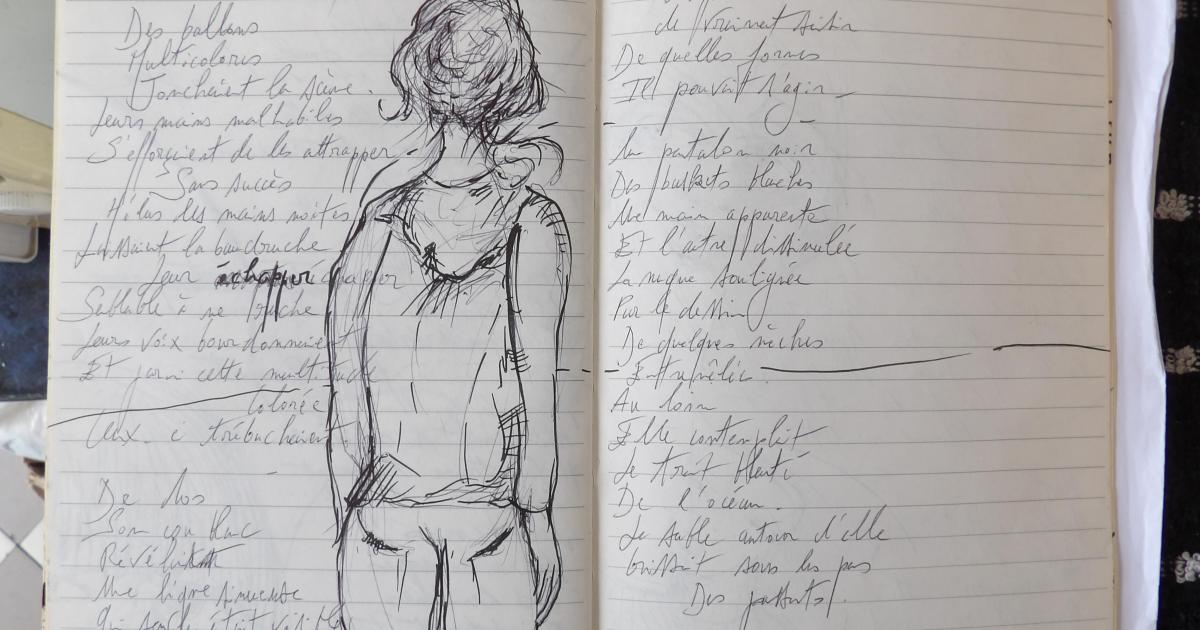 Des ballons
Multicolores
Jonchaient la scène.
Leurs mains malhabiles
S'efforçaient de les attrapper.
Sans succès
Hélas les mains moites
Laissaient la baudruche
leur échapper
Semblable à une
Leurs voix bourdonnaient
Et parmi cette
Colorée
Ceux-ci trébuchaient.
De dos
Son cou blanc
Révélait
Une ligne sinueuse
Qui semble était
de vraiment saisir
De quelles formes
Il pouvait s'agir
Un pantalon noir
Des baskets blanches
Une main apparente
Et l'autre dissimulée
La nuque soulignée
Par le dessin
De quelques mèches
Au loin
Elle contemplait
Le trait
De l'océan.
Le sable autour d'elle
sous les pas
Des passants.